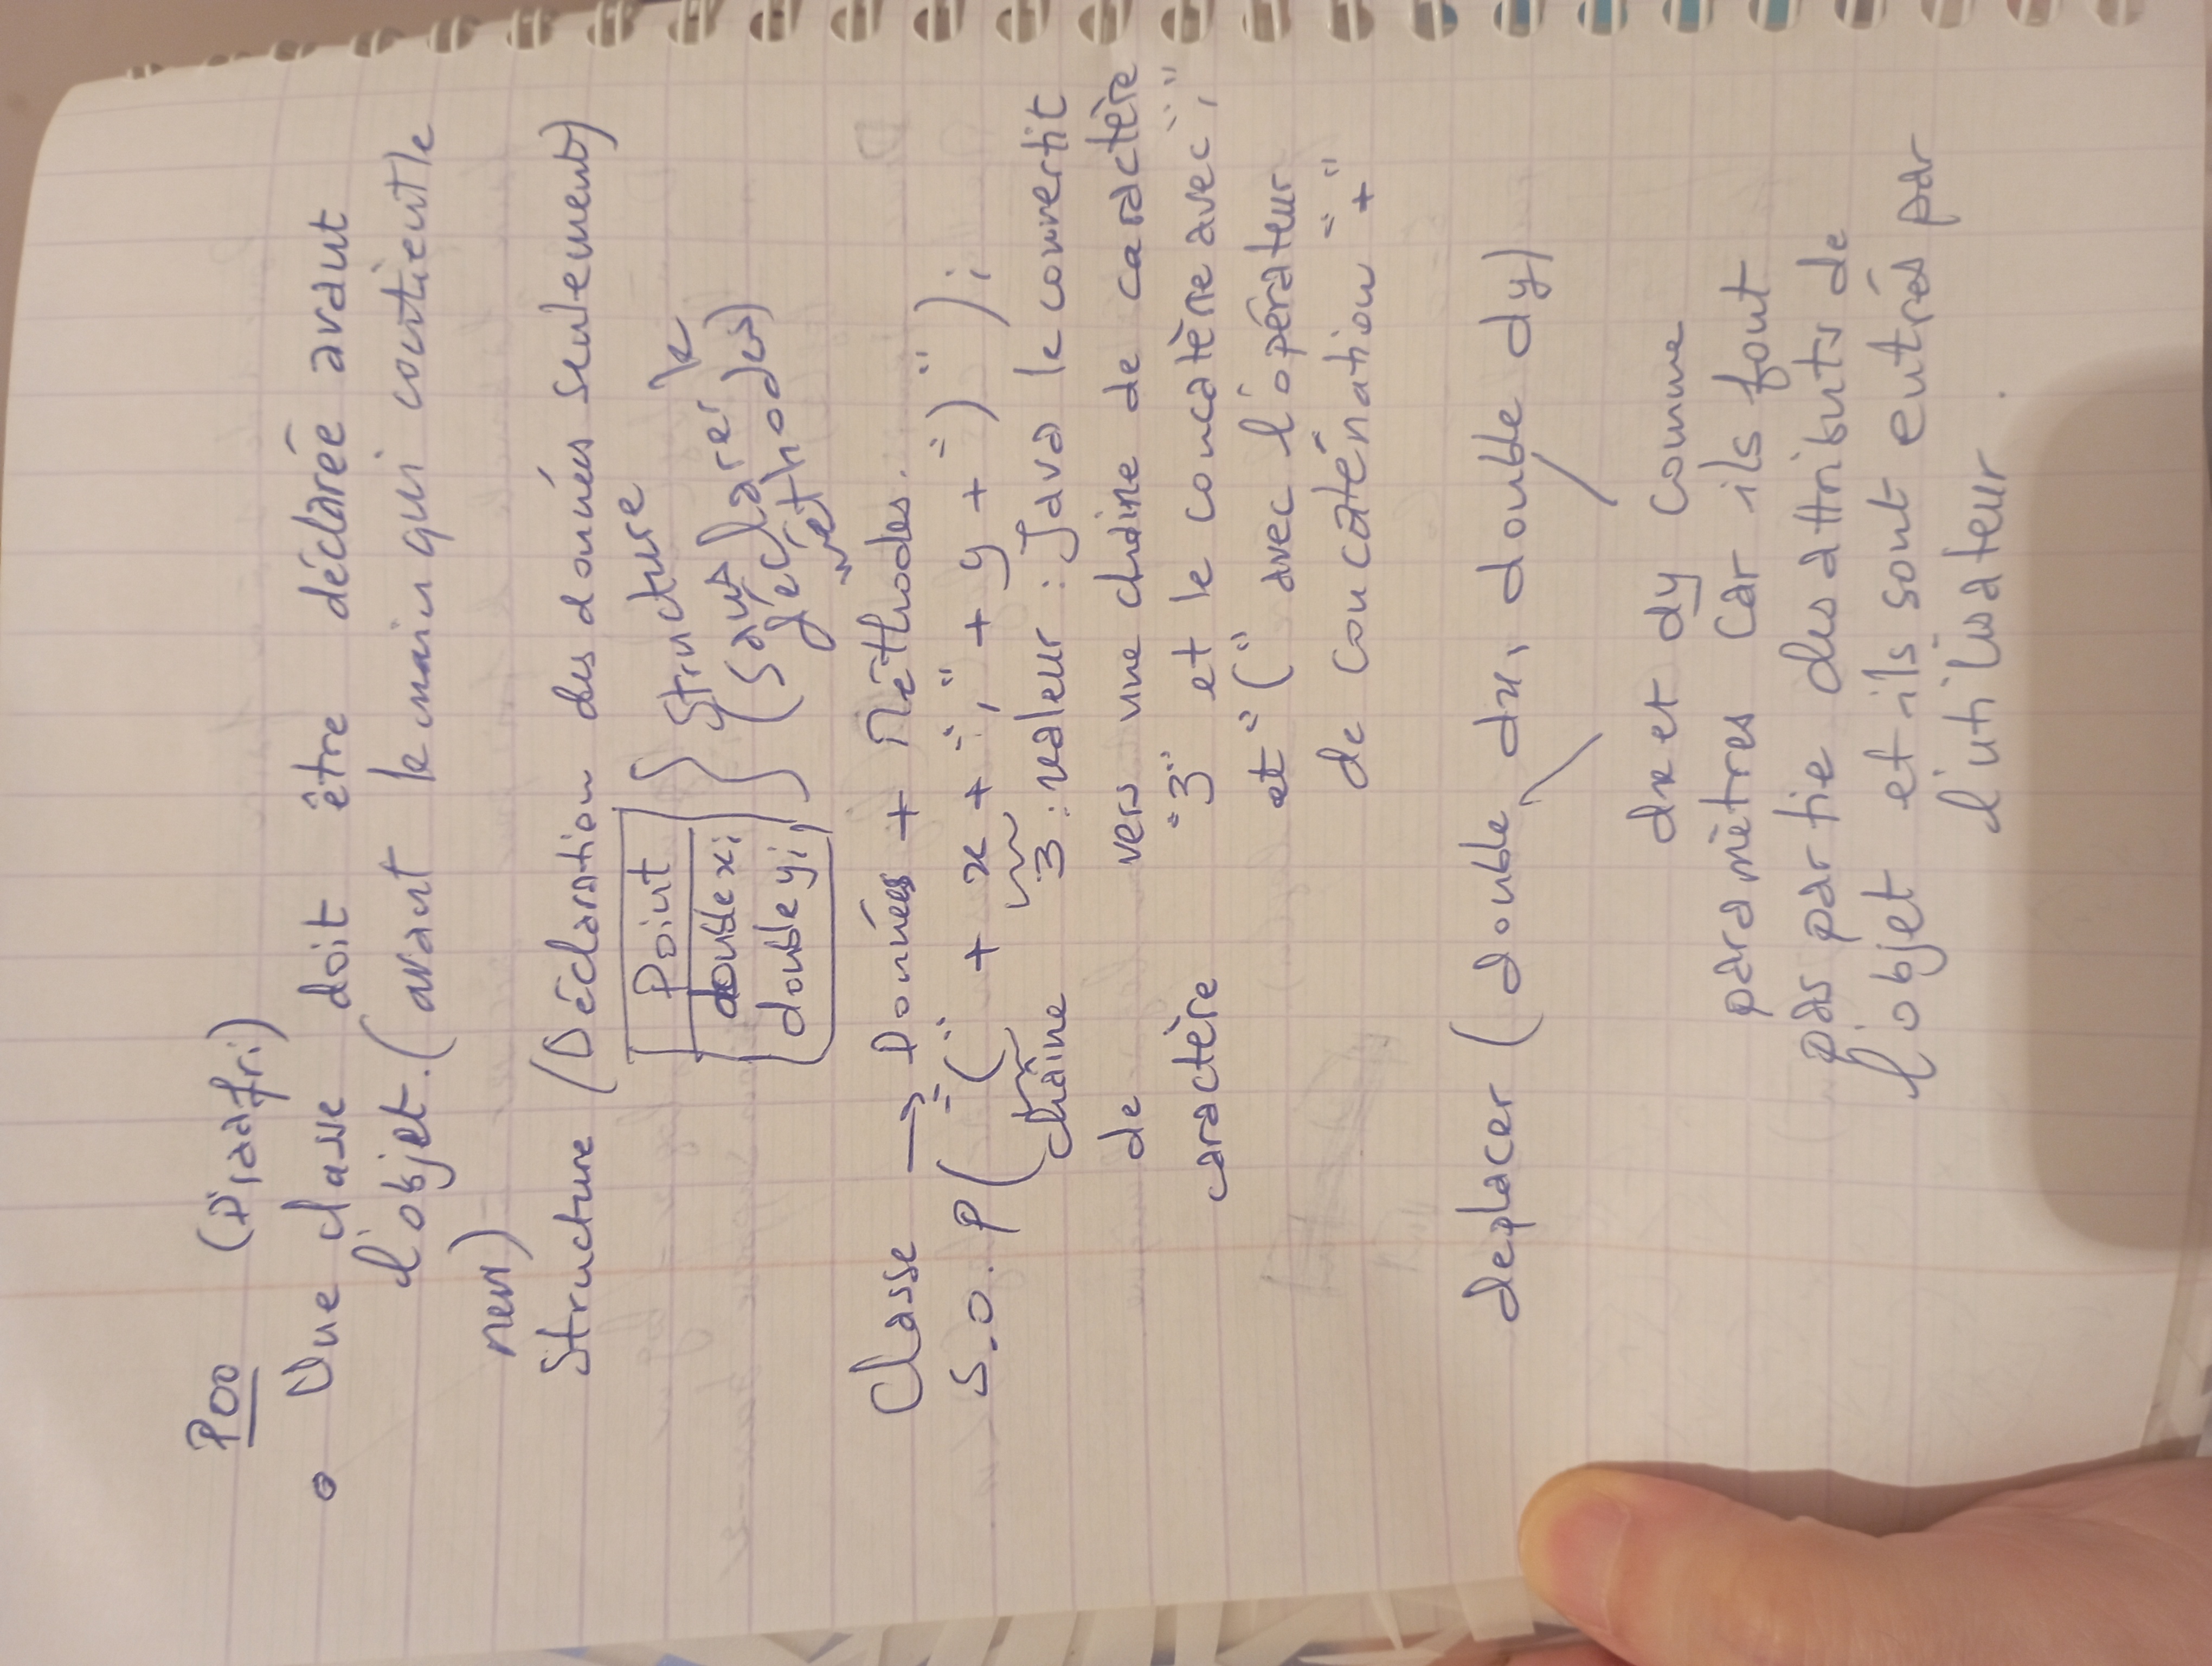 POO (Djaafri)
• Une classe doit être déclarée avant
l'objet. (avant le main qui contient le
new)
Structure (Déclaration des données seulement)
Point
double x;
double y;
Structure
(sans
déclarer le
méthodes)
Classe → Données + Méthodes.
S.O.P( "(" + x + "," + y + ")" );
chaîne 3 : valeur : Java le convertit
de vers une chaine de caractère
caractère "3" et le concatène avec ","
et "(" avec l'opérateur
de concaténation "+"
deplacer (double dx, double dy)
dx et dy comme
paramètres car ils font
pas partie des attributs de
l'objet et ils sont entrés par
l'utilisateur.